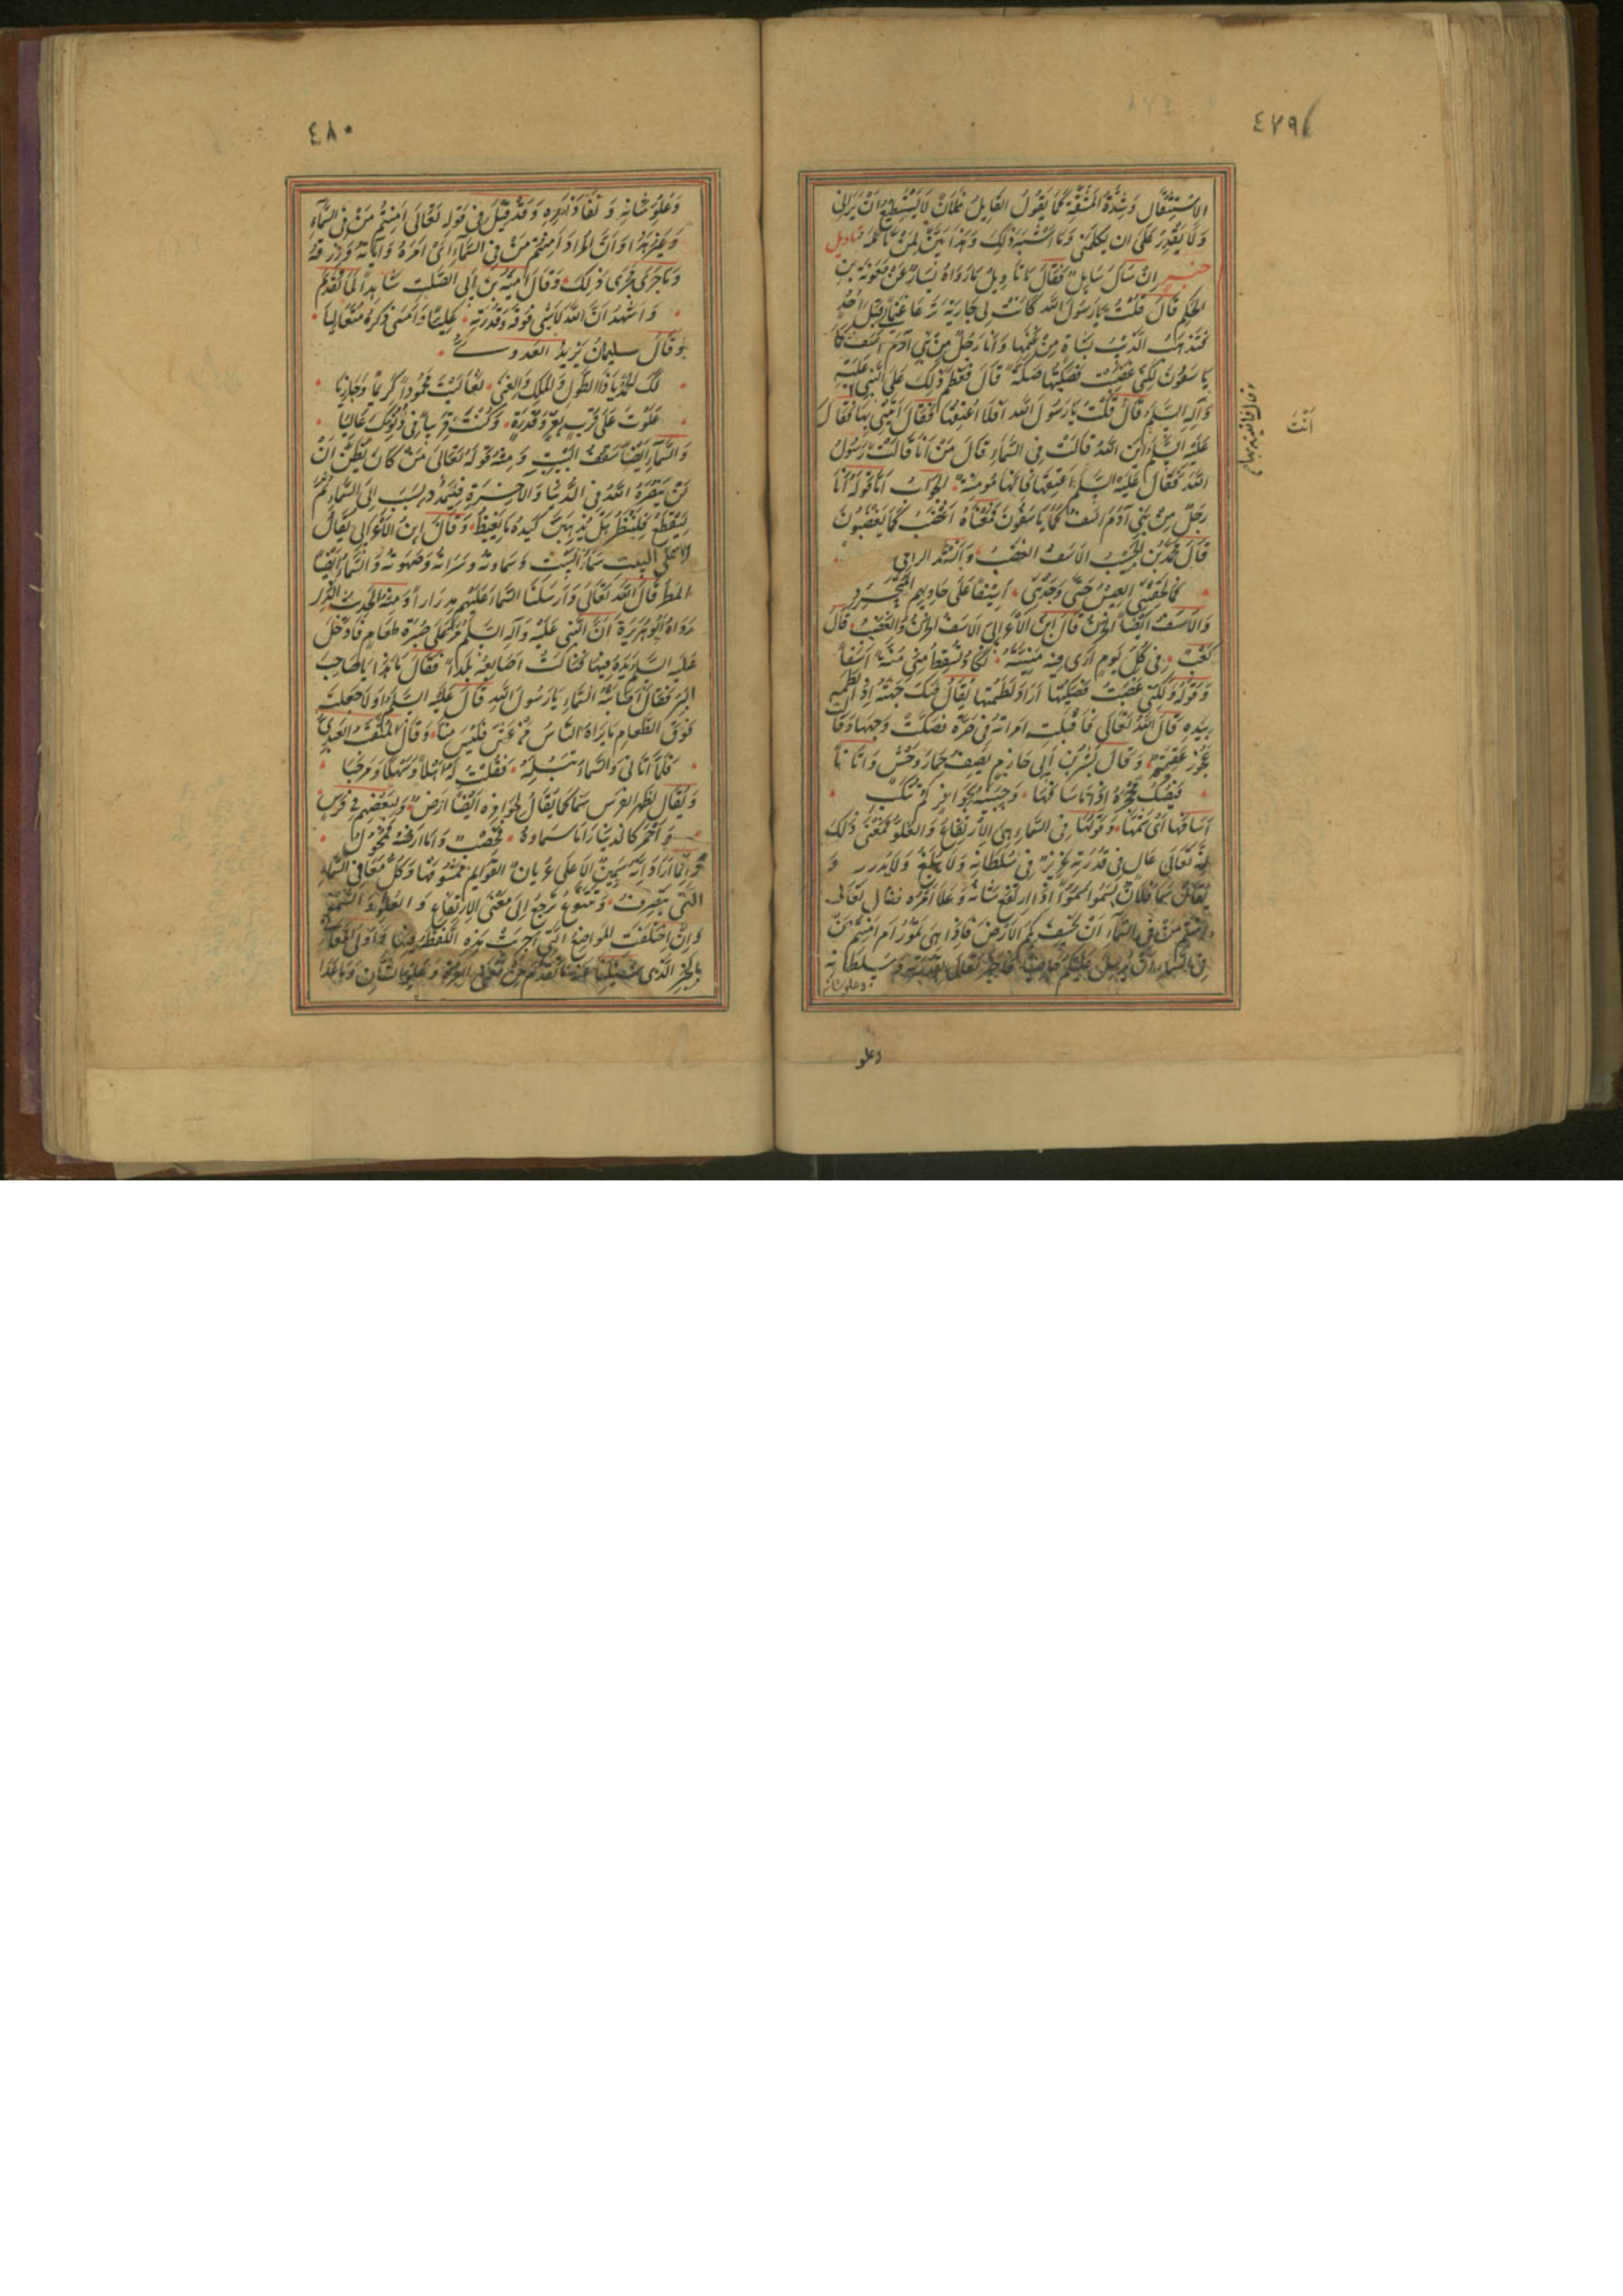 ٤٧٩
الاستثقال وشدة المشقة كما يقول القايل فلان لا يستطيع ان يراني
ولا يقدر على ان يكلمني وما اشبه ذلك وهذا بين لمن تامله تاويل
خبر ان سال سايل فقال ما تاويل ما رواه يسار عن معوية بن
الحكم قال قلت يا رسول الله كانت لي جارية ترعا غنما قبل احد
فتذهب الذيب بشاة من غنمها وانا رجل من بني آدم آسف كما
ياسفون لكني غضبت فصككتها صكة قال فعظم ذلك على النبي عليه
وآله السلم قال قلت يا رسول الله افلا اعتقها فقال ايتيني بها فقال
عليه السلم اين الله قالت في السماء قال من انا قالت رسول
الله فقال عليه السلم اعتقها فانها مومنة الجواب اما قوله انا
رجل من بني آدم آسف كما ياسفون فمعناه اغضب كما يغضبون
قال محمد بن الحبيب الاسف الغضب وانشد الراعي
فما لحقتني العيس حتى وجدتني اسيفا على حاديهم المتجرد
والاسف ايضا الحزن قال ابن الاعرابي الاسف الحزن والغضب قال
كعب في كل يوم ارى فيه منيته تكاد تسقط مني منة اسفا
وقوله ولكني غضبت فصككتها اراد لطمتها يقال صك جبهته اذا لطمها
بيده قال الله تعالى فاقبلت امراته في صرة فصكت وجهها وقالت
عجوز عقيم وقال بشر بن ابي خازم يصف حمار وحش واتانا
فيصك محجره اذا ما سافها وجبينه بحوافر لم تنكب
سافها اي شمها وقولها في السماء هي الارتفاع والعلو فمعنى ذلك
انه تعالى عال في قدرته عزيز في سلطانه لا يبلغ ولا يدرك و
يقال سما فلان يسموا سموا اذا ارتفع شانه وعلا امره فقال تعالى
ءامنتم من في السماء ان يخسف بكم الارض فاذا هي تمور ام امنتم من
في السماء ان يرسل عليكم حاصبا فاخبر تعالى بقدرته وسلطانه
وعلو شانه
وعلو
انت
٤٨٠
وعلو شانه ونفاذ امره وقد قيل في قوله تعالى امنتم من في السماء
وغير هذا وان المراد ءامنتم من في السماء اي امره وآياته ورزقه
وما جرى مجرى ذلك وقال امية بن ابي الصلت شاهدا لما تقدم
واشهد ان الله لا شي فوقه وقدرته عليا وامسى ذكره متعاليا
وقال سليمان يزيد العدوي
لك الحمد يا ذا الطول والملك والغنى تعاليت محمودا كريما وجازيا
علوت على قرب بعز وقدرة وكنت قريبا في دنوك عاليا
والسماء ايضا سقف البيت ومنه قوله تعالى من كان يظن ان
لن ينصره الله في الدنيا والاخرة فليمدد بسبب الى السماء ثم
ليقطع فلينظر هل يذهبن كيده ما يغيظ وقال ابن الاعرابي يقال
لاعلى البيت سماء البيت وسماوته وسراته وصهوته والسماء ايضا
المطر قال الله تعالى وارسلنا السماء عليهم مدرارا ومنه الحديث الذي
رواه ابو هريرة ان النبي عليه وآله السلم مر على صبرة طعام فادخل
عليه السلم يده فيها فنالت اصابعه بللا فقال ما هذا يا صاحب
البر فقال اصابته السماء يا رسول الله قال عليه السلم اولا جعلته
فوق الطعام ما يراه الناس من غش فليس منا وقال المثقب العبدي
فلما اتاني والسماء تبله فقلت له اهلا وسهلا ومرحبا
ويقال لظهر الفرس سما كما يقال لحوافره ايضا ارض ولبعضهم في فرس
واحمر كالدينار اما سماوه فخصب واما ارضه فمحول
وانما اراد انه سمين الاعلى عريان القوايم ممشوقها وكل معاني السماء
التي تتصرف وتتنوع ترجع الى معنى الارتفاع والعلو والسمو
وان اختلفت المواضع التي اجريت هذه اللفظة فيها واولى المعاني
بالخبر الذي سئلنا عنه ما تقدم من معنى العزة وعلو الشان وما عدا